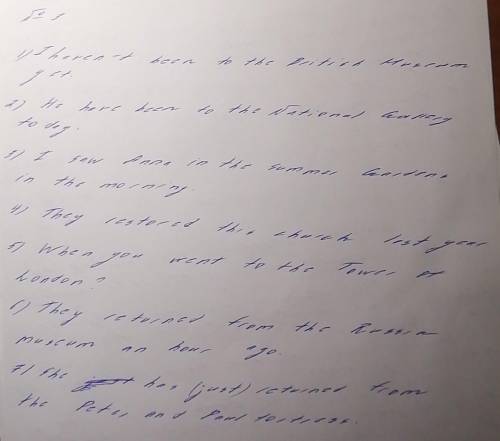 № 3
1) I haven't been to the British Museum
yet.
2) He have been to the National Gallery
today.
3) I saw Anna in the summer Gardens
in the morning.
4) They restored this church last year
5) When you went to the Tower of
London?
6) They retorned from the Russian
museum an hour ago.
7) She has (just) retorned from
the Peter and Paul fortress.